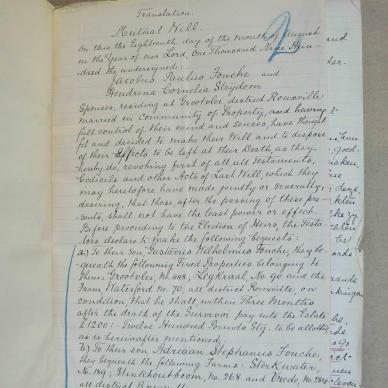 Translation.
Mutual Will.
On this the Eighteenth day of the Month of August
in the Year of our Lord, One Thousand Nine Hun-
dred the undersigned:
Jacobus Paulus Fouche and
Hendrena Cornelia Strydom
Spouses, residing at Grootvlei district Rouxville
married in community of Property, and having
full control of their mind and senses, have thought
fit and decided to make their Will and to dispose
of their Effects to be left at their Death as they
hereby do, revoking first of all all Testaments,
Codicils and other Acts of Last Will, which they
may heretofore have made jointly or severally,
desiring, that those after the passing of these pre-
sents, shall not have the least power or effect.
Before proceeding to the Election of Heirs, the Testa-
tors declare to make the following bequests:
a) To their son Gustavus Wilhelmus Fouche, they be-
queath the following Fixed Properties belonging to
them: Grootvlei No. Legkraal No. 90 and the
Farm Waterford No. 70, all district Rouxville, on
condition that he shall within Three Months
after the death of the Survivor pay into the Estate
£1200:- Twelve Hundred Pounds Stg. to be allotted
as is hereinafter mentioned.
b) To their son Adriaan Stephanus Fouche,
they bequeath the following Farms: Sterkwater,
No. 189, Stinkhoutboom, No. 268 and Vrede, No. 284
all district Rouxville